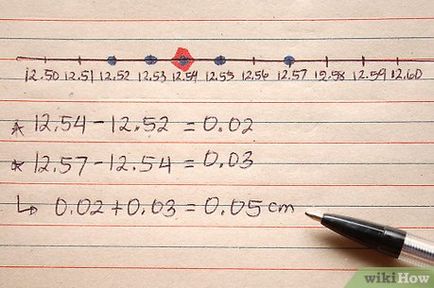 12.50 12.51 12.52 12.53 12.54 12.55 12.56 12.57 12.58 12.59 12.60
* 12.54 - 12.52 = 0.02
* 12.57 - 12.54 = 0.03
↳ 0.02 + 0.03 = 0.05 cm
wikiHow